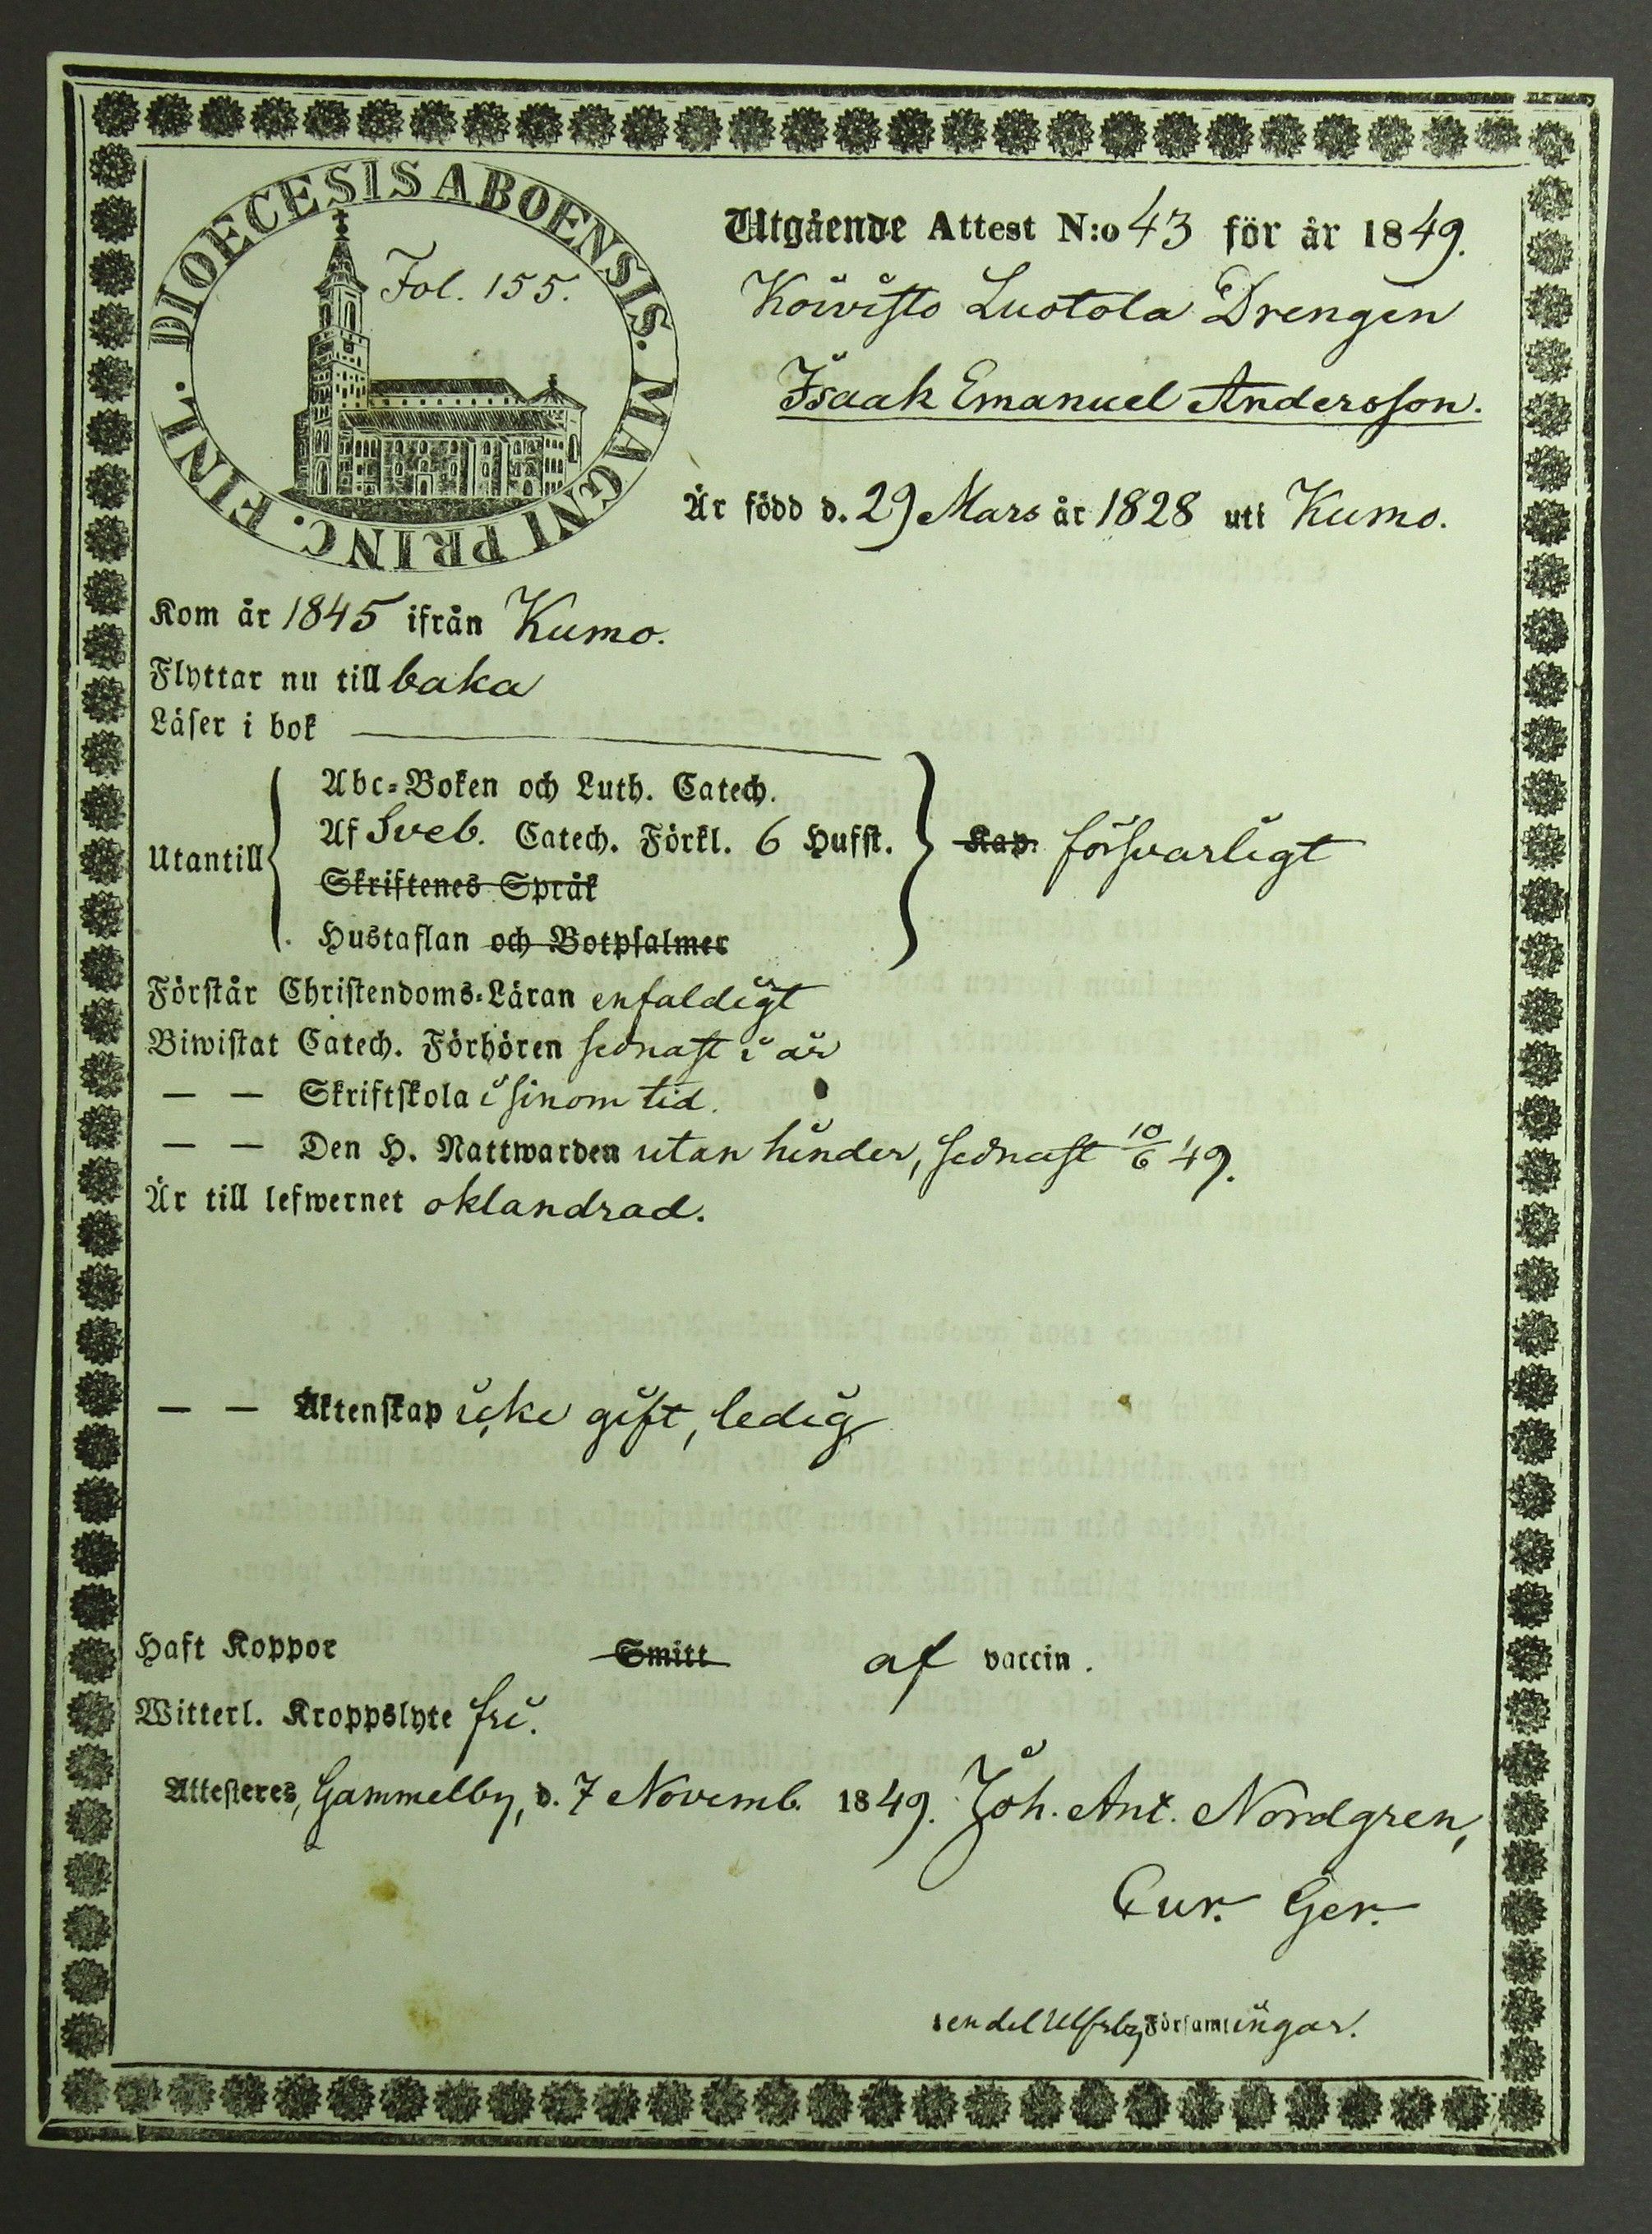 DIOECESIS ABOENSIS. MAGNI PRINC. FINL.
Fol. 155.
Utgående Attest N:o 43 för år 1849.
Koivisto Luotola Drengen
Isaak Emanuel Andersson.
Är född d. 29 Mars år 1828 uti Kumo.
Kom år 1845 ifrån Kumo.
Flyttar nu till baka
Läser i bok
Utantill
Abc-Boken och Luth. Catech.
Af Sveb. Catech. Förkl. 6 Hufst.
Skriftenes Språk
Hustaflan och Botpsalmer
Kap. försvarligt
Förstår Christendoms-Läran enfaldigt
Biwistat Catech. Förhören sednast i år
— — Skriftskola i sinom tid.
— — Den H. Nattwarden utan hinder, sednast 10/6 49.
Är till lefwernet oklandrad.
— — Äktenskap icke gift, ledig
Haft Koppor Smitt af vaccin.
Witterl. Kroppslyte fri.
Attesteres, Gammelby, d. 7 Novemb. 1849. Joh. Ant. Nordgren,
Cur. Ger.
Församlingar.